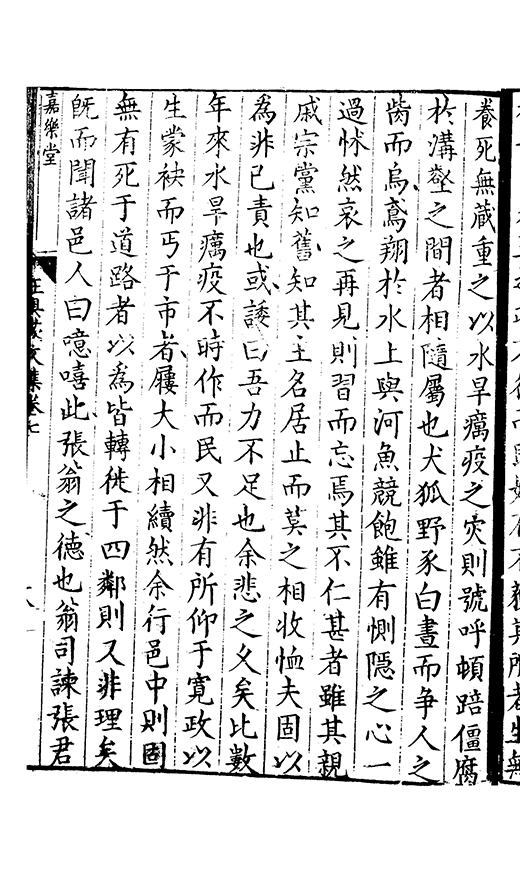 養死無蔵重之以水旱癘疫之灾則號呼頓踣僵腐
於溝壑之間者相隨屬也犬狐野豕白晝而争人之
胔而烏鳶翔於水上與河魚競飽雖有惻隱之心一
過怵然哀之再見則習而忘焉其不仁甚者雖其親
戚宗黨知舊知其主名居止而莫之相收恤夫固以
為非已責也或諉曰吾力不足也余悲之乆矣比數
年來水旱癘疫不時作而民又非有所仰于寛政以
生蒙袂而丐于市者屨大小相續然余行邑中則固
無有死于道路者以為皆轉徙于四鄰則又非理矣
旣而聞諸邑人曰噫嘻此張翁之德也翁司諫張君
嘉樂堂
文集卷七
八